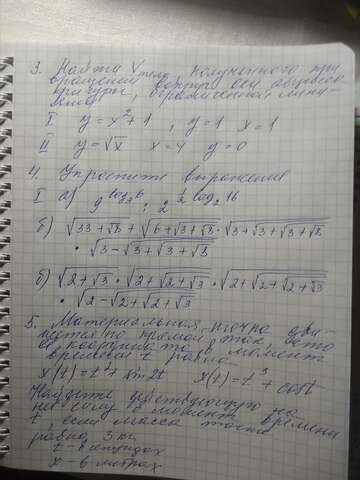 3. Найти V тела, полученного при
вращении вокруг оси абсцисс
фигуры, ограниченной лини-
ями
I y = x² + 1, y = 1 x = 1
II y = √x x = 4 y = 0
4. Упростите выражение
I а) 9^(log₃ 6) : 2^(½ log₂ 16)
б) √(33 + √8) · √(6 + √(3 + √8)) · √(3 + √(3 + √(3 + √8)))
· √(3 − √(3 + √(3 + √8)))
б) √(2 + √3) · √(2 + √(2 + √3)) · √(2 + √(2 + √(2 + √3)))
· √(2 − √(2 + √(2 + √3)))
5. Материальная точка дви-
жется по прямой так, что
её координата в момент
времени t равна
x(t) = t² + sin2t x(t) = t³ + cost
Найдите действующую на
неё силу в момент времени
t, если масса точки
равна 3 кг
t - в секундах
x - в метрах